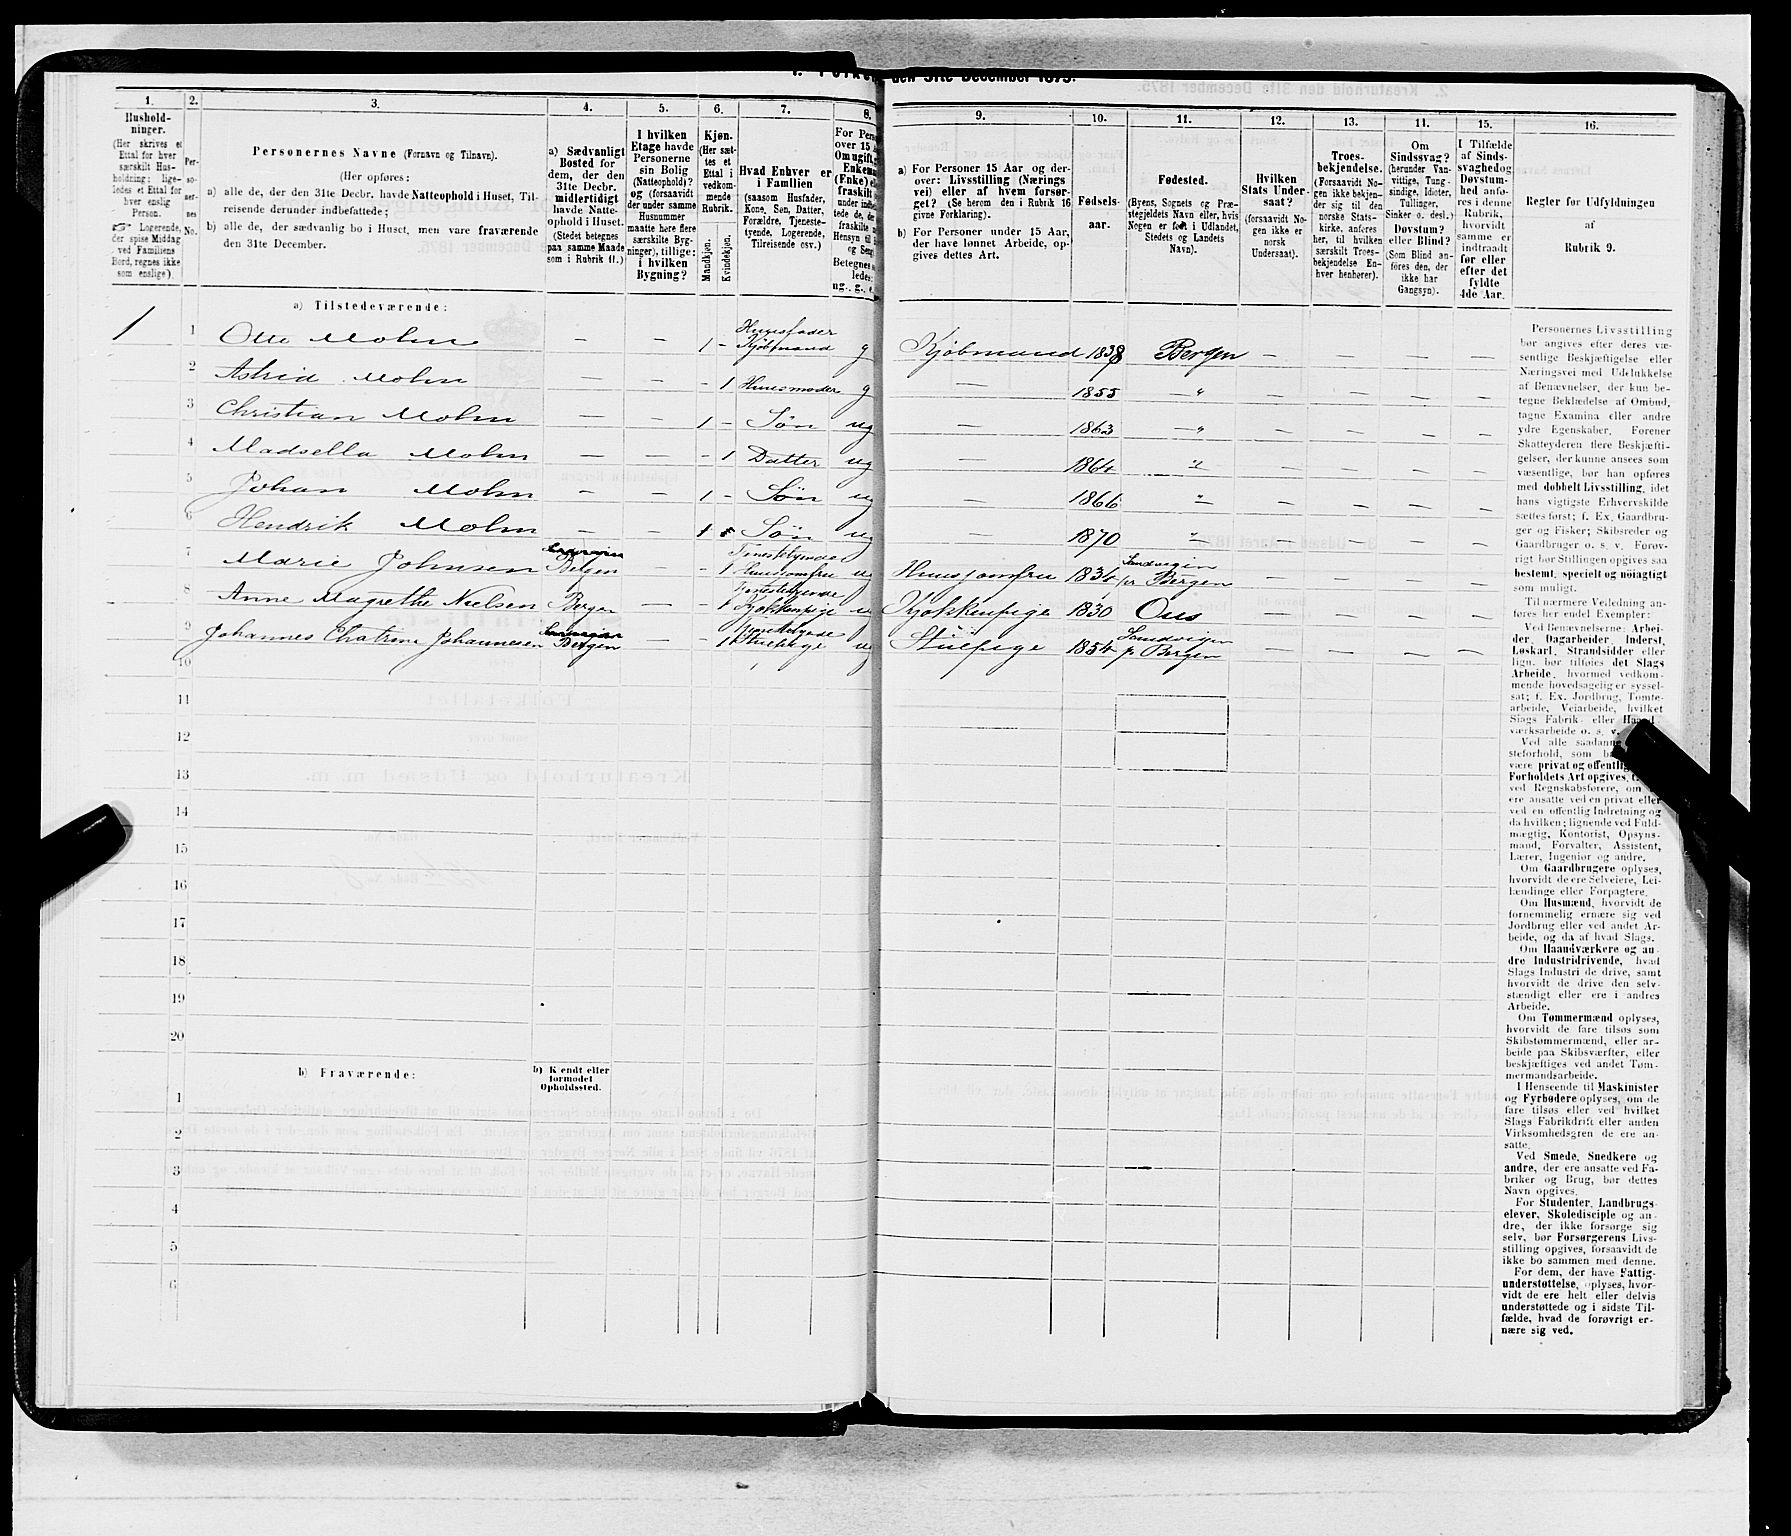 1. Folket den 31te December 1875.
1. 2. 3. 4. 5. 6. 7. 8.
Hushold-
ninger.
(Her skrives et
Ettal for hver
særskilt Hus-
holdning; lige-
ledes et Ettal for
hver enslig
Person.
☞ Logerende,
der spise Middag
ved Familiens
Bord, regnes ikke
som enslige).
Per-
so-
ner-
nes
No.
Personernes Navne (Fornavn og Tilnavn).
(Her opføres:
a) alle de, der den 31te Decbr. havde Natteophold i Huset, Til-
reisende derunder indbefattede;
b) alle de, der sædvanlig bo i Huset, men vare fraværende
den 31te December.
a) Sædvanligt
Bosted for
dem, der den
31te Decbr.
midlertidigt
havde Natte-
ophold i Huset.
(Stedet betegnes
paa samme Maade
som i Rubrik 11.)
I hvilken
Etage havde
Personerne
sin Bolig
(Natteophold)?
og (forsaavidt
der under samme
Husnummer
maatte høre flere
særskilte Byg-
ninger), tillige:
i hvilken
Bygning?
Kjøn.
(Her sæt-
tes et
Ettal i
vedkom-
mende
Rubrik.
Mandkjøn.
Kvindekjøn.
Hvad Enhver er
i Familien
(saasom Husfader,
Kone, Søn, Datter,
Forældre, Tjeneste-
tyende, Logerende,
Tilreisende osv.)
For Pers
over 15 A
Om ugift,
Enkema
(Enke) e
fraskilt
under indbe
tede de, de
fraskilte
Hensyn til
og Seng
Betegnes s
ledes:
ug., g., e.
a) Tilstedeværende:
1 1 Otto Mohn — — 1 – Huusfader Kjøbmand g
2 Astrid Mohn — — – 1 Huusmoder g
3 Christian Mohn — — 1 – Søn ug
4 Madsella Mohn — — – 1 Datter ug
5 Johan Mohn — — 1 – Søn ug
6 Hendrik Mohn — — 1 Søn ug
7 Marie Johnsen Bergen — – 1 Tjenestetyende Huusjomfru ug
8 Anne Magrethe Nielsen Bergen — – 1 Tjenestetyende Kjøkkenpige u
9 Johannes Chatrine Johannesen Bergen — – 1 Tjenestetyende Stuepige ug
10
11
12
13
14
15
16
17
18
19
20
b) Fraværende:
b) Kjendt eller
formodet
Opholdssted.
1
2
3
4
5
6
9. 10. 11. 12. 13. 14. 15. 16.
a) For Personer 15 Aar og der-
over: Livsstilling (Nærings-
vei) eller af hvem forsør-
get? (Se herom den i Rubrik 16
givne Forklaring).
b) For Personer under 15 Aar,
der have lønnet Arbeide, op-
gives dettes Art.
Fødsels-
aar.
Fødested.
(Byens, Sognets og Præ-
stegjeldets Navn eller, hvis
Nogen er født i Udlandet,
Stedets og Landets
Navn).
Hvilken
Stats Under-
saat?
(forsaavidt No-
gen ikke er
norsk
Undersaat).
Troes-
bekjendelse.
(Forsaavidt No-
gen ikke bekjen-
der sig til den
norske Stats-
kirke, anføres
her, til hvilken
særskilt Troes-
bekjendelse En-
hver henhører).
Om
Sindssvag?
(herunder Van-
vittige, Tung-
sindige, Idioter,
Tullinger,
Sinker o. desl.)
Døvstum?
eller Blind?
(Som Blind an-
føres den, der
ikke har
Gangsyn).
I Tilfælde
af Sinds-
svaghed og
Døvstum-
hed anfø-
res i denne
Rubrik,
hvorvidt
samme er
indtraadt
før eller
efter det
fyldte
4de Aar.
Regler for Udfyldningen
af
Rubrik 9.
Kjøbmand 1838 Bergen — — — —
— 1855 — " — — — —
— 1863 — " — — — —
— 1864 " — — — —
— 1866 " — — — —
1870 " — — — —
Huusjomfru 1834 Sandvigen pr Bergen — — — —
Kjøkkenpige 1830 Ous — — — —
Stuepige 1854 Sandvigen pr Bergen — — — —
Personernes Livsstilling
bør angives efter deres væ-
sentlige Beskjæftigelse eller
Næringsvei med Udelukkelse
af Benævnelser, der kun be-
tegne Beklædelse af Ombud,
tagne Examina eller andre
ydre Egenskaber. Forener
Skatteyderen flere Beskjæfti-
gelser, der kunne ansees som
væsentlige, bør han opføres
med dobbelt Livsstilling, idet
hans vigtigste Erhvervskilde
sættes først; f. Ex. Gaardbru-
ger og Fisker; Skibsreder og
Gaardbruger o. s. v. Forøv-
rigt bør Stillingen opgives saa
bestemt, specielt og nøiagtigt
som muligt.
Til nærmere Veiledning an-
føres her endel Exempler:
Ved Benævnelserne: Arbei-
der, Dagarbeider, Inderst,
Løskarl, Strandsidder eller
lign. bør tilføies det Slags
Arbeide, hvormed vedkom-
mende hovedsagelig er syssel-
sat; f. Ex. Jordbrug, Tomte-
arbeide, Veiarbeide, hvilket
Slags Fabrik- eller Haand-
værksarbeide o. s. v.
Ved alle saadanne
steforhold, som
være privat og offentlig
Forholdets Art opgives,
ved Regnskabsførere, om
ere ansatte ved en privat eller
ved en offentlig Indretning og
da hvilken; lignende ved Fuld-
mægtig, Kontorist, Opsyns-
mand, Forvalter, Assistent,
Lærer, Ingeniør og andre.
Om Gaardbrugere oplyses,
hvorvidt de ere Selveiere, Lei-
lændinge eller Forpagtere.
Om Husmænd, hvorvidt de
fornemmelig ernære sig ved
Jordbrug eller ved andet Ar-
beide, og da af hvad Slags.
Om Haandværkere og an-
dre Industridrivende, hvad
Slags Industri de drive, samt
hvorvidt de drive den selv-
stændigt eller ere i andres
Arbeide.
Om Tømmermænd oplyses,
hvorvidt de fare tilsøs som
Skibstømmermænd, eller ar-
beide paa Skibsværfter, eller
beskjæftiges ved andet Tøm-
mermandsarbeide.
I Henseende til Maskinister
og Fyrbødere oplyses, om de
fare tilsøs eller ved hvilket
Slags Fabrikdrift eller anden
Virksomhedsgren de ere an-
satte.
Ved Smede, Snedkere og
andre, der ere ansatte ved Fa-
briker og Brug, bør dettes
Navn opgives.
For Studenter, Landbrugs-
elever, Skoledisciple og an-
dre, der ikke forsørge sig
selv, bør Forsørgerens Livs-
stilling opgives, forsaavidt de
ikke bo sammen med denne.
For dem, der have Fattig-
understøttelse, oplyses, hvor-
vidt de ere helt eller delvis
understøttede og i sidste Til-
fælde, hvad de forøvrigt er-
nære sig ved.